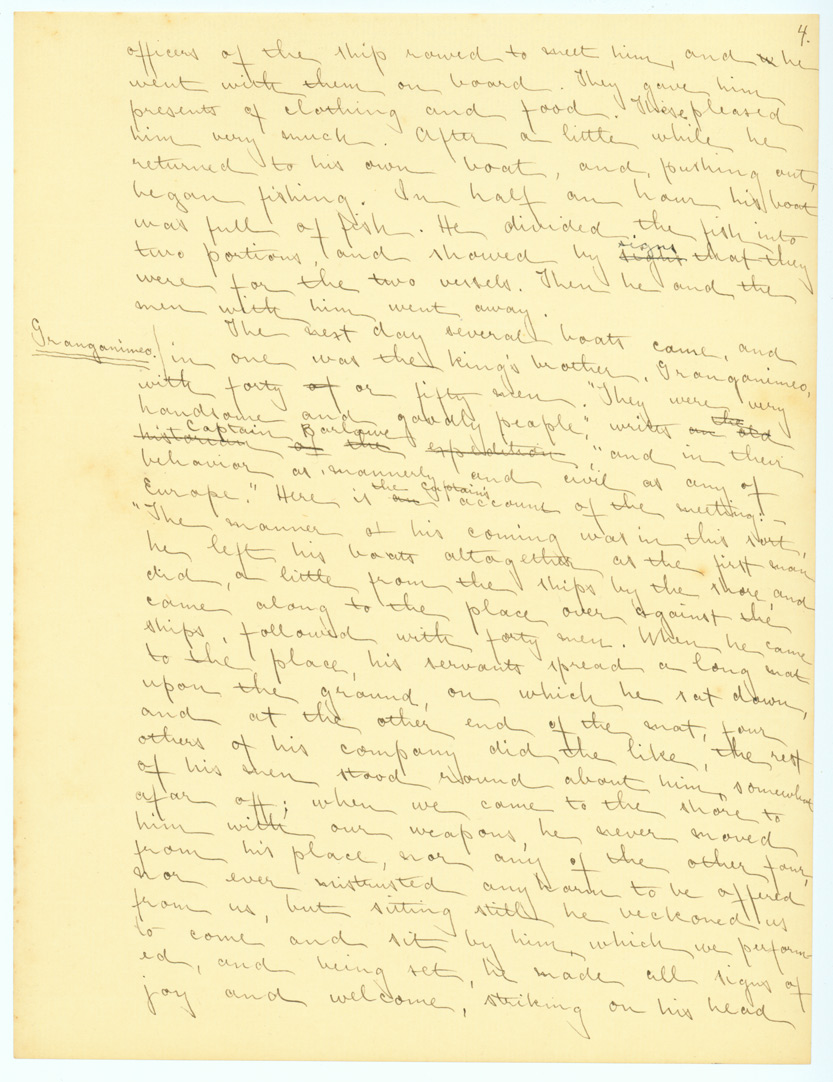 4.
officers of the ship rowed to meet him, and he
went with them on board. They gave him
presents of clothing and food. These pleased
him very much. After a little while he
returned to his own boat, and, pushing out,
began fishing. In half an hour his boat
was full of fish. He divided the fish into
two portions, and showed by sight signs that they
were for the two vessels. Then he and the
men with him went away.
The next day several boats came, and
Granganimeo.
in one was the king's brother, Granganimeo,
with forty of or fifty men. "They were very
handsome and goodly people," writes an old the
historian of the expedition Captain Barlowe, "and in their
behavior as mannerly and civil as any of
Europe." Here is an the captain's account of the meeting:—
"The manner of his coming was in this sort,
he left his boats altogether as the first man
did, a little from the ships by the shore, and
came along to the place over against the
ships, followed with forty men. When he came
to the place, his servants spread a long mat
upon the ground, on which he sat down,
and at the other end of the mat, four
others of his company did the like, the rest
of his men stood round about him, somewhat
afar off; when we came to the shore to
him with our weapons, he never moved
from his place, nor any of the other four,
nor ever mistrusted any harm to be offered
from us, but sitting still he beckoned us
to come and sit by him, which we perform-
ed, and being set, he made all signs of
joy and welcome, striking on his head